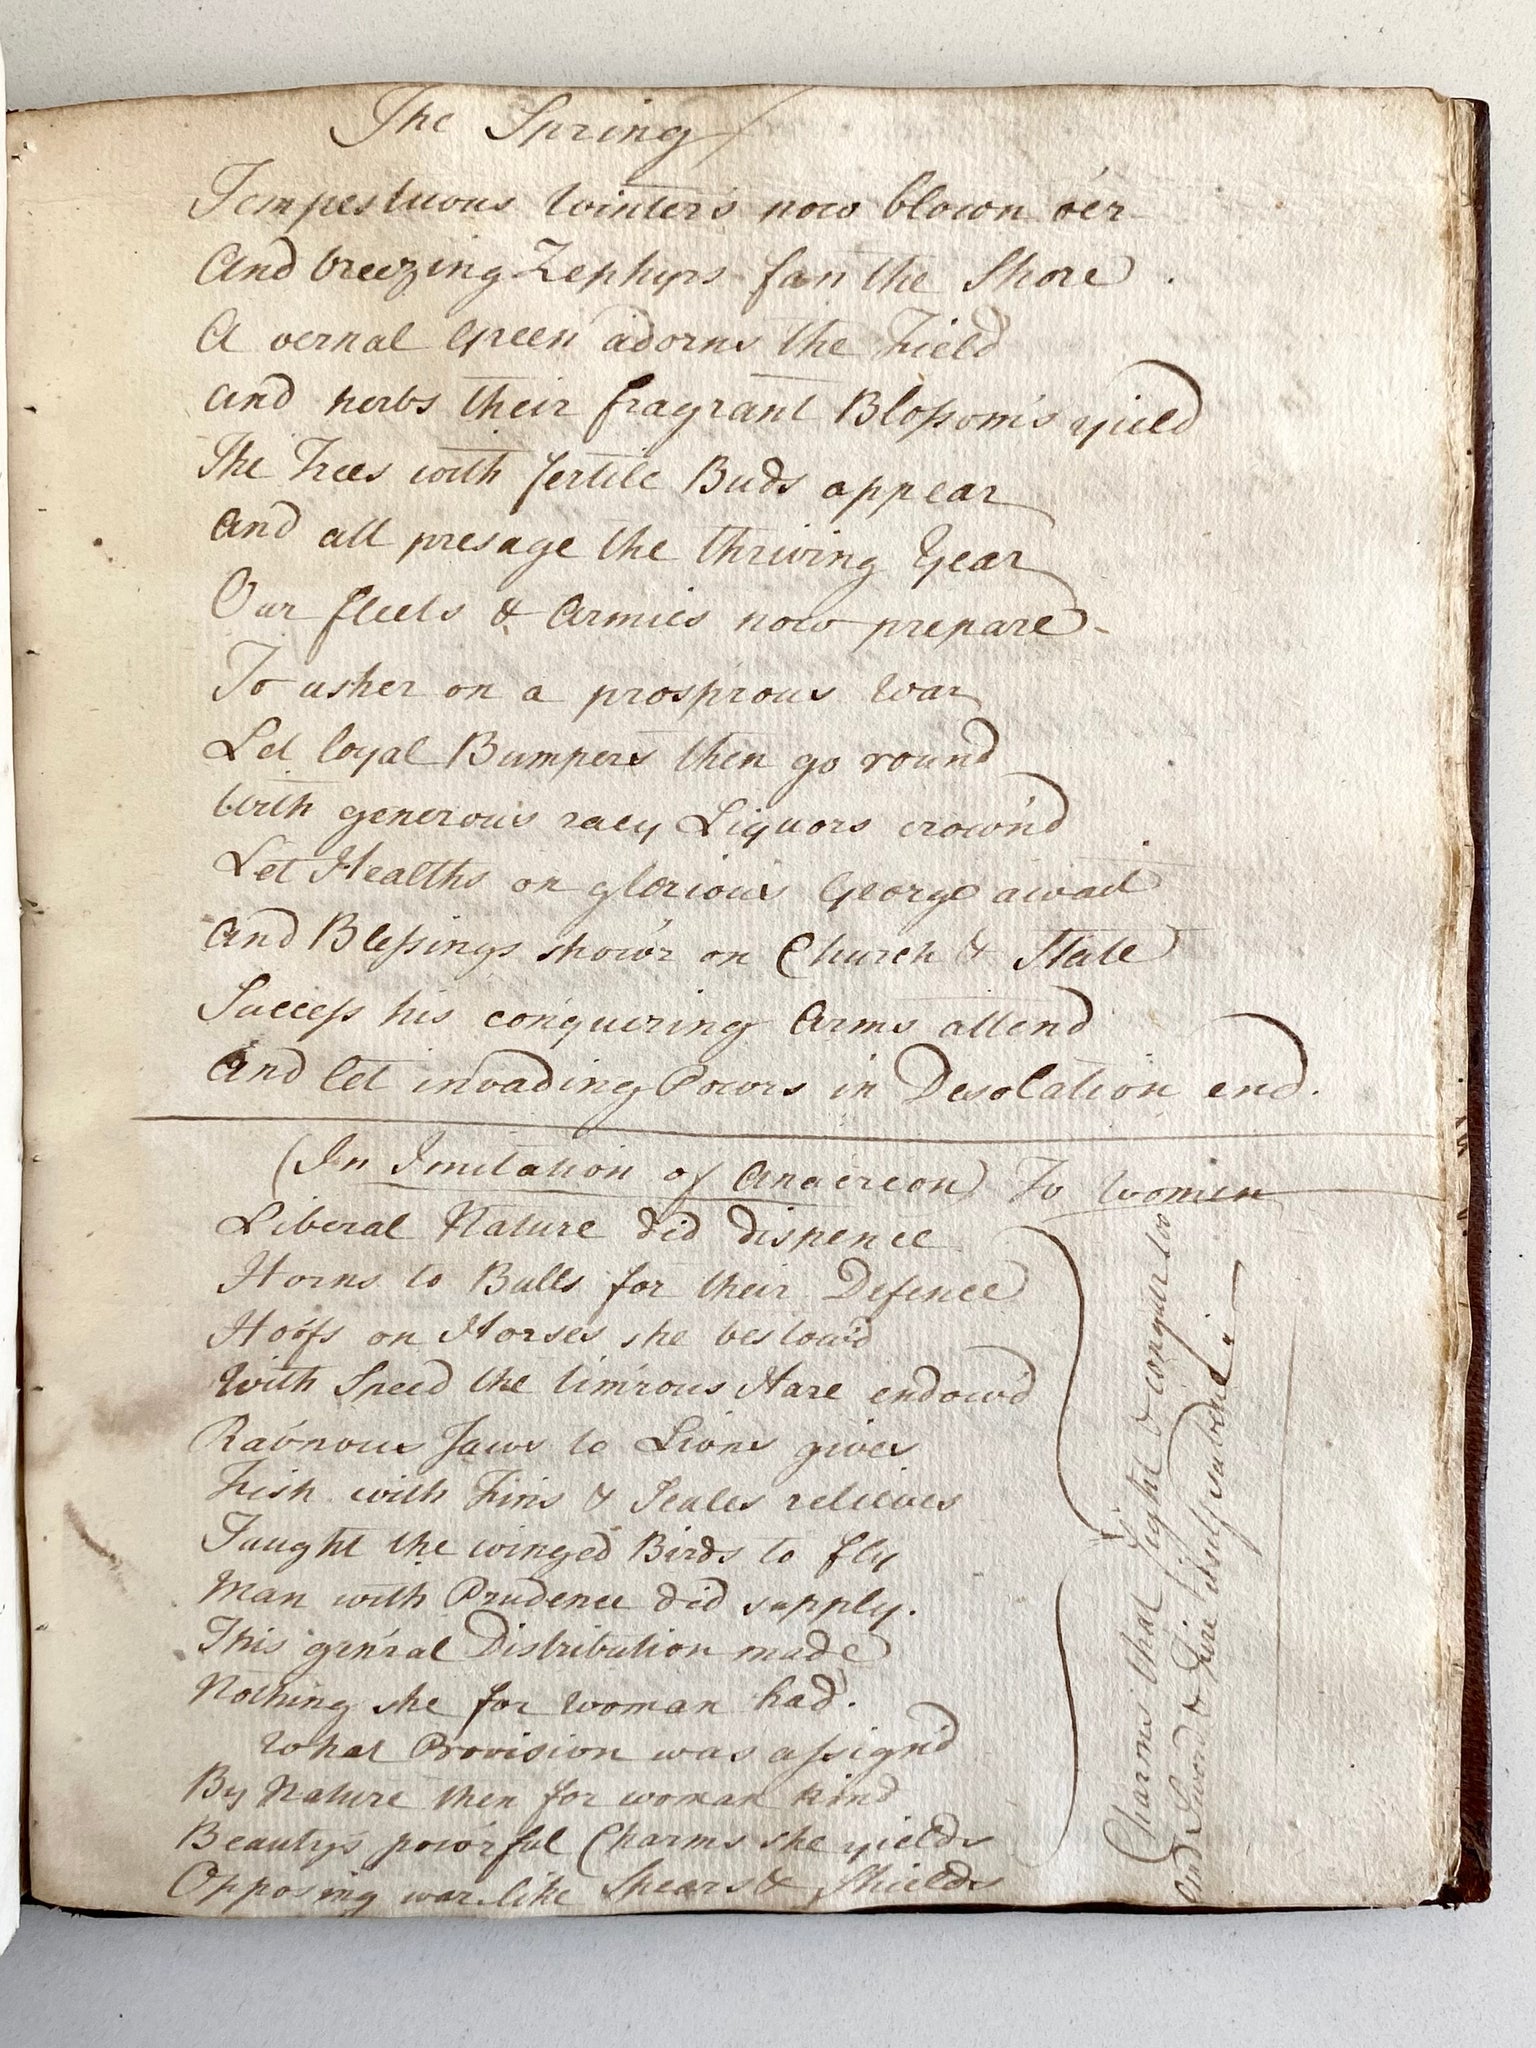 The Spring
Tempestuous Winter's now blown o'er
And breezing Zephyrs fan the Shore.
A vernal Green adorns the Field
And herbs their fragrant Blossom's yield
The Trees with fertile Buds appear
And all presage the thriving Year
Our fleets & Armies now prepare
To usher on a prosp'rous War
Let loyal Bumpers then go round
With generous racy Liquors crown'd
Let Healths on glorious George await
And Blessings show'r on Church & State
Success his conquering Arms attend
And let invading Powrs in Desolation end.
(In Imitation of Anacreon) To Women
Liberal Nature did dispence
Horns to Bulls for their Defence
Hoofs on Horses she bestow'd
With Speed the tim'rous Hare endow'd
Rav'nous Jaws to Lions gives
Fish with Fins & Scales relieves
Taught the winged Birds to fly
Man with Prudence did supply.
This gen'ral Distribution made
Nothing she for Woman had.
What Provision was assign'd
By Nature then for woman kind
Beauty's pow'rful Charms she yields
Opposing war-like Spears & Shields
Charms that fight & conquer too
And Sword & Fire itself subdue.